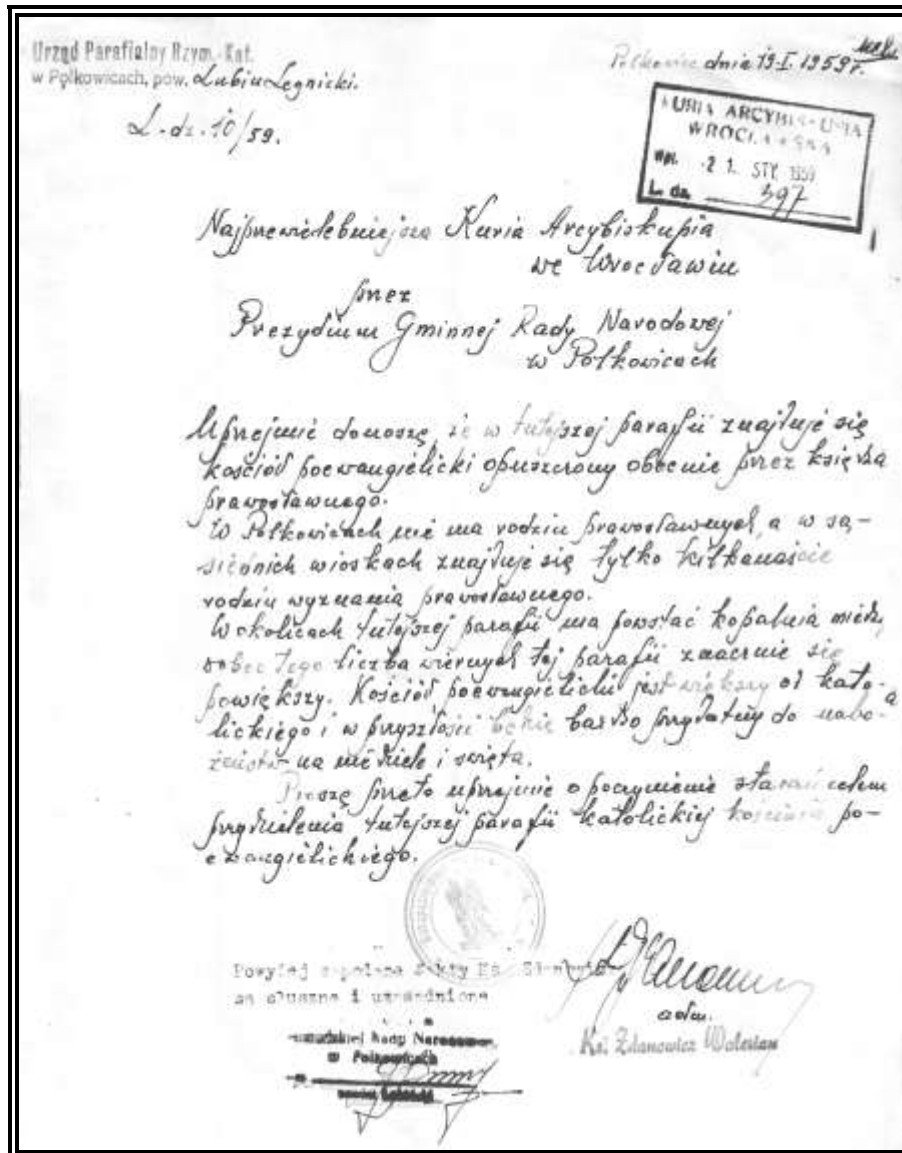 Urząd Parafialny Rzym.-Kat.
w Polkowicach, pow. Lubin Legnicki.
L. dz. 10/59.
Polkowice dnia 19.I.1959r.
KURIA ARCYBISKUPIA
WROCŁAWSKA
Wpł. 21. STY. 1959
L. dz. 397
Najprzewielebniejsza Kuria Arcybiskupia
we Wrocławiu
przez
Prezydium Gminnej Rady Narodowej
w Polkowicach
Uprzejmie donoszę, że w tutejszej parafii znajduje się
kościół poewangielicki opuszczony obecnie przez księdza
prawosławnego.
W Polkowicach nie ma rodzin prawosławnych, a w są-
siednich wioskach znajduje się tylko kilkanaście
rodzin wyznania prawosławnego.
W okolicach tutejszej parafii ma powstać kopalnia miedzi,
wobec tego liczba wiernych tej parafii znacznie się
powiększy. Kościół poewangielicki jest większy od kato-
lickiego i w przyszłości będzie bardzo przydatny do nabo-
żeństw na niedziele i święta.
Proszę przeto uprzejmie o poczynienie starań celem
przydzielenia tutejszej parafii katolickiej kościoła po-
ewangielickiego.
Powyżej podane fakty Ks.
są słuszne i uzasadnione
adm.
Ks. Zdanowicz Walerian
Rady Narodowej
w Polkowicach